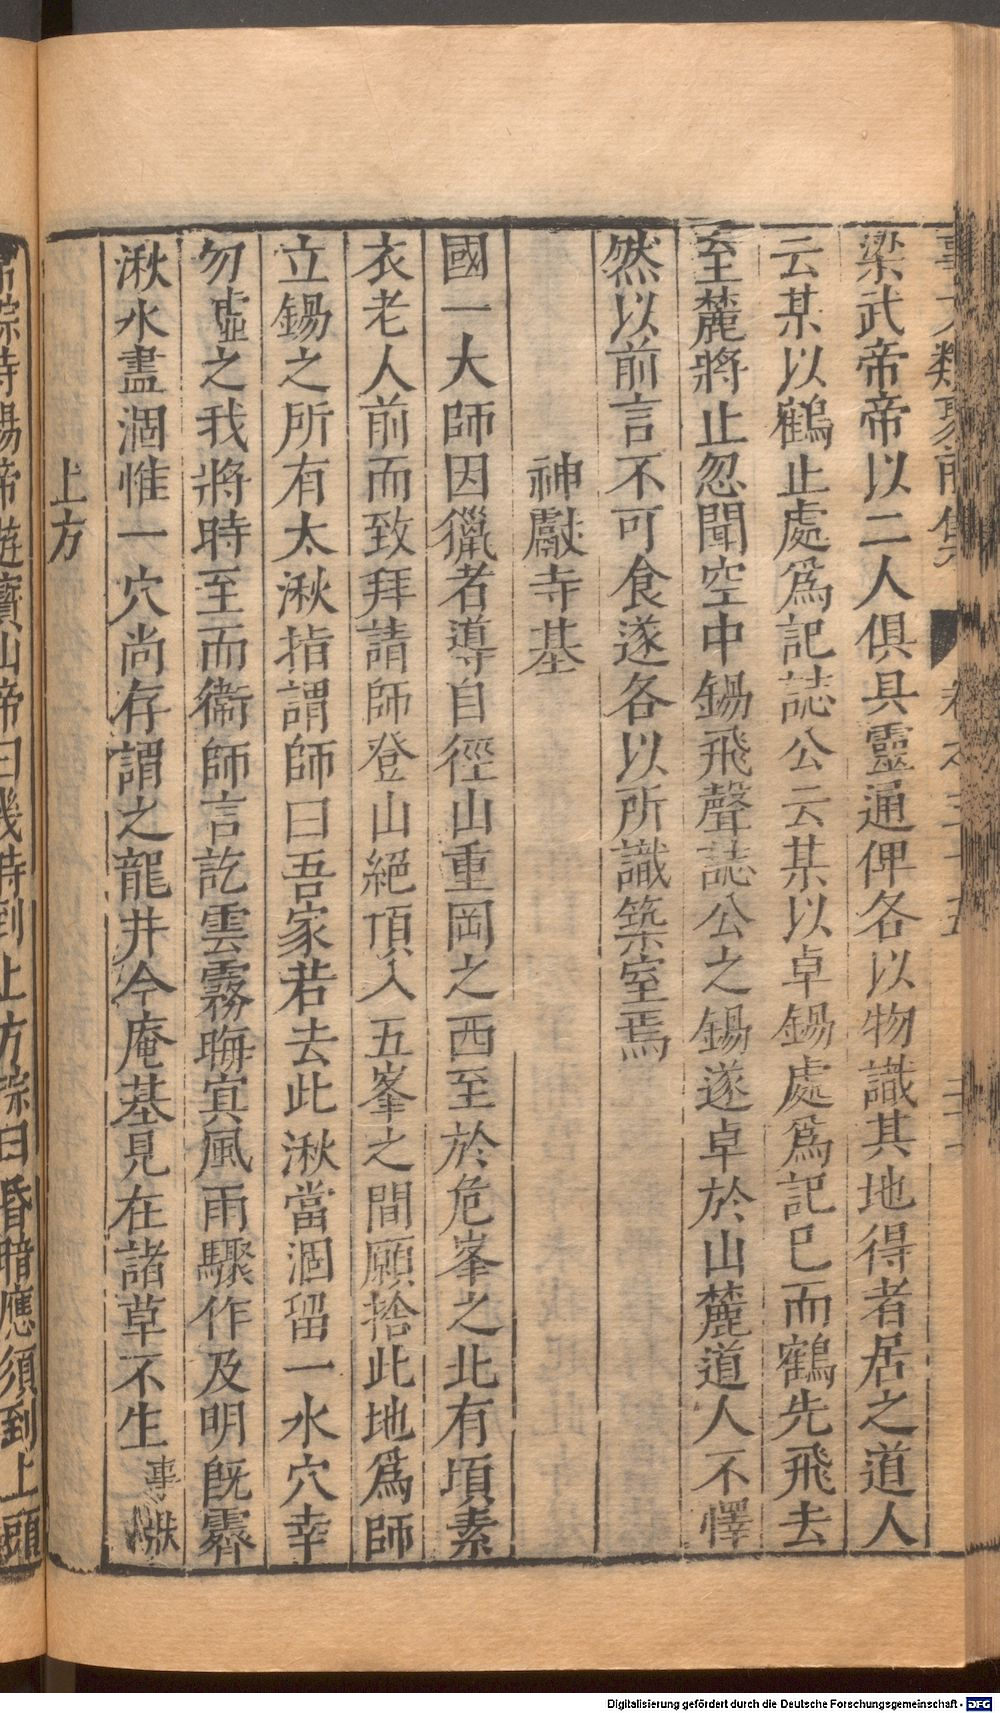 事文類聚前集 卷之三十五
梁武帝帝以二人俱具靈通俾各以物識其地得者居之道人
云某以鶴止處爲記誌公云某以卓錫處爲記已而鶴先飛去
至麓將止忽聞空中錫飛聲誌公之錫遂卓於山麓道人不懌
然以前言不可食遂各以所識築室焉
神獻寺基
國一大師因獵者導自徑山重岡之西至於危峯之北有頃素
衣老人前而致拜請師登山絕頂入五峯之間願捨此地爲師
立錫之所有太湫指謂師曰吾家若去此湫當涸留一水穴幸
勿虛之我將時至而衞師言訖雲霧晦冥風雨驟作及明旣霽
湫水盡涸惟一穴尚存謂之龍井今庵基見在諸草不生 事狀
上方
帝曰幾時到上方綜曰昏暗應須到上頭
Digitalisierung gefördert durch die Deutsche Forschungsgemeinschaft - DFG